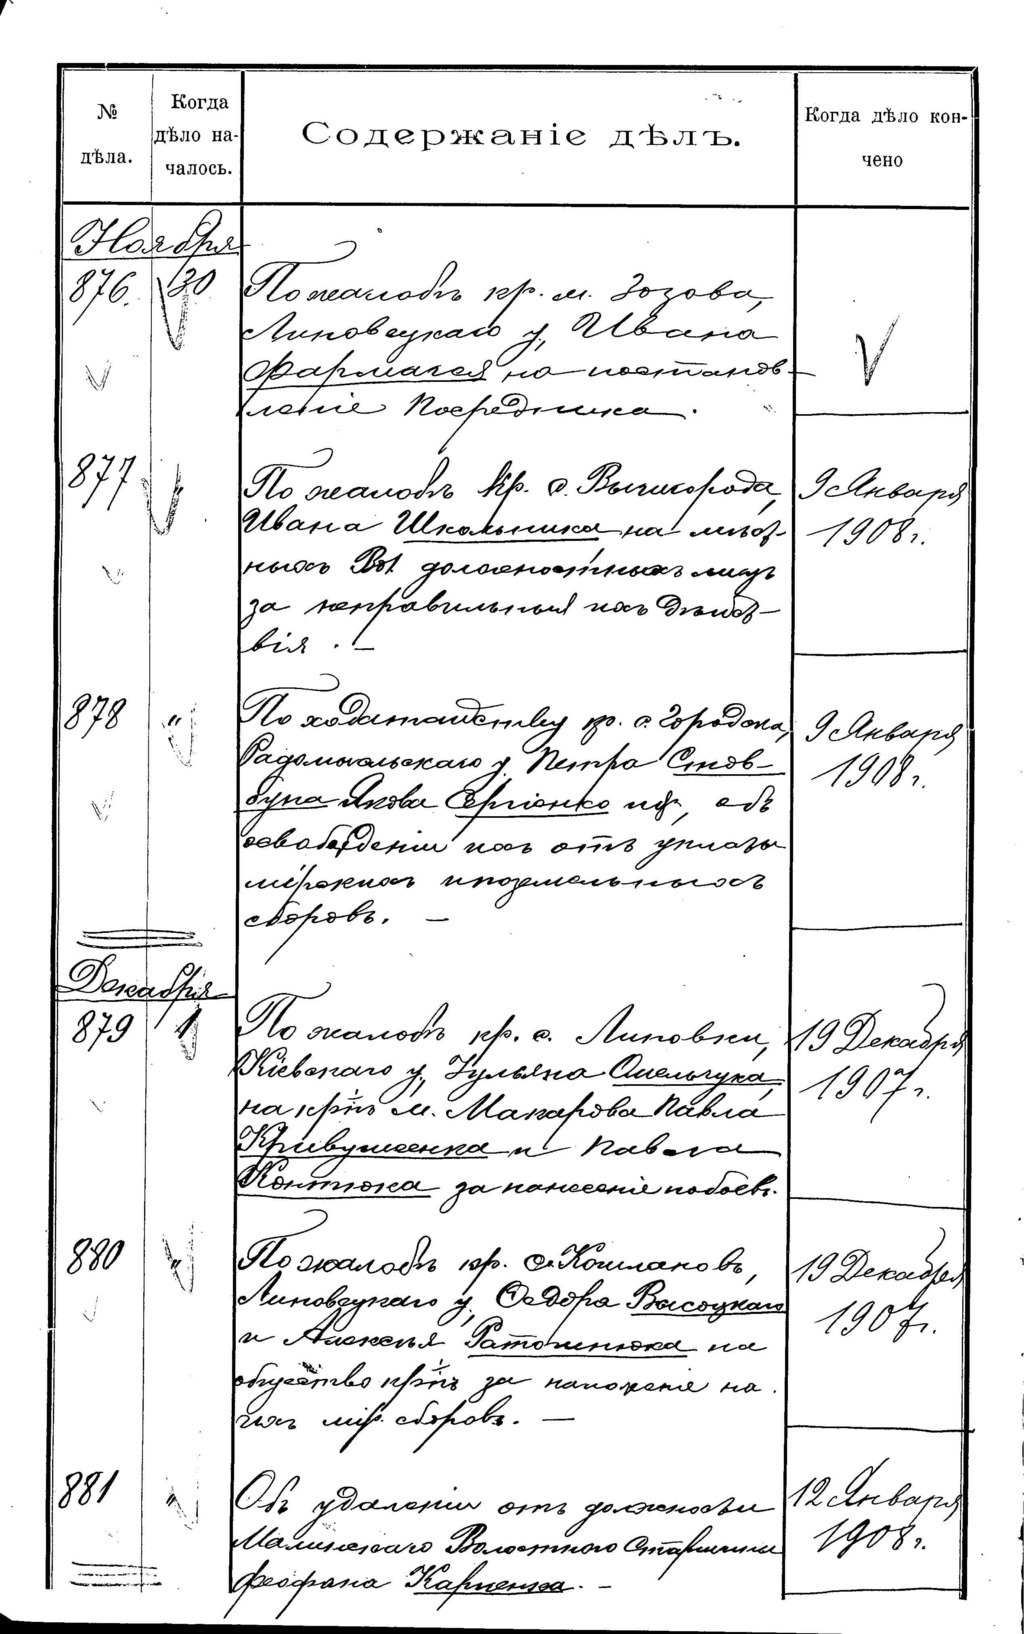 № дѣла.
Когда дѣло на-
чалось.
Содержаніе дѣлъ.
Когда дѣло кон-
чено
Ноября
876. 30 По жалобѣ кр. м. Зозова,
Липовецкаго у, Ивана
Фармагея на постанов-
леніе Посредника.
877 " По жалобѣ кр. с. Вышгорода, 9 Января
Ивана Школьника на мѣст- 1908 г.
ныхъ должностныхъ лицъ
за неправильныя ихъ дѣйст-
вія. —
878 " По ходатайству кр. с. Городска, 9 Января
Радомысльскаго у. Петра Стов- 1908 г.
буна Якова Сергіенко и др, объ
освобожденіи ихъ отъ уплаты
мірскихъ и поземельныхъ
сборовъ. —
Декабря
879 1 По жалобѣ кр. с. Липовки, 19 Декабря
Кіевскаго у, Гульяна Омельчука, 1907 г.
на крнъ м. Макарова Павла
Кривушенка и Павла
Контюка за нанесеніе побоевъ.
880 " По жалобѣ кр. с. Кошлановъ, 19 Декабря
Липовецкаго у, Федора Высоцкаго 1907 г.
и Алексѣя Ратошнюка на
общество крнъ за наложеніе на
нихъ мір. сборовъ. —
881 " Объ удаленіи отъ должности 12 Января
Малинскаго Волостного Старшины 1908 г.
Феофана Карпенка. —